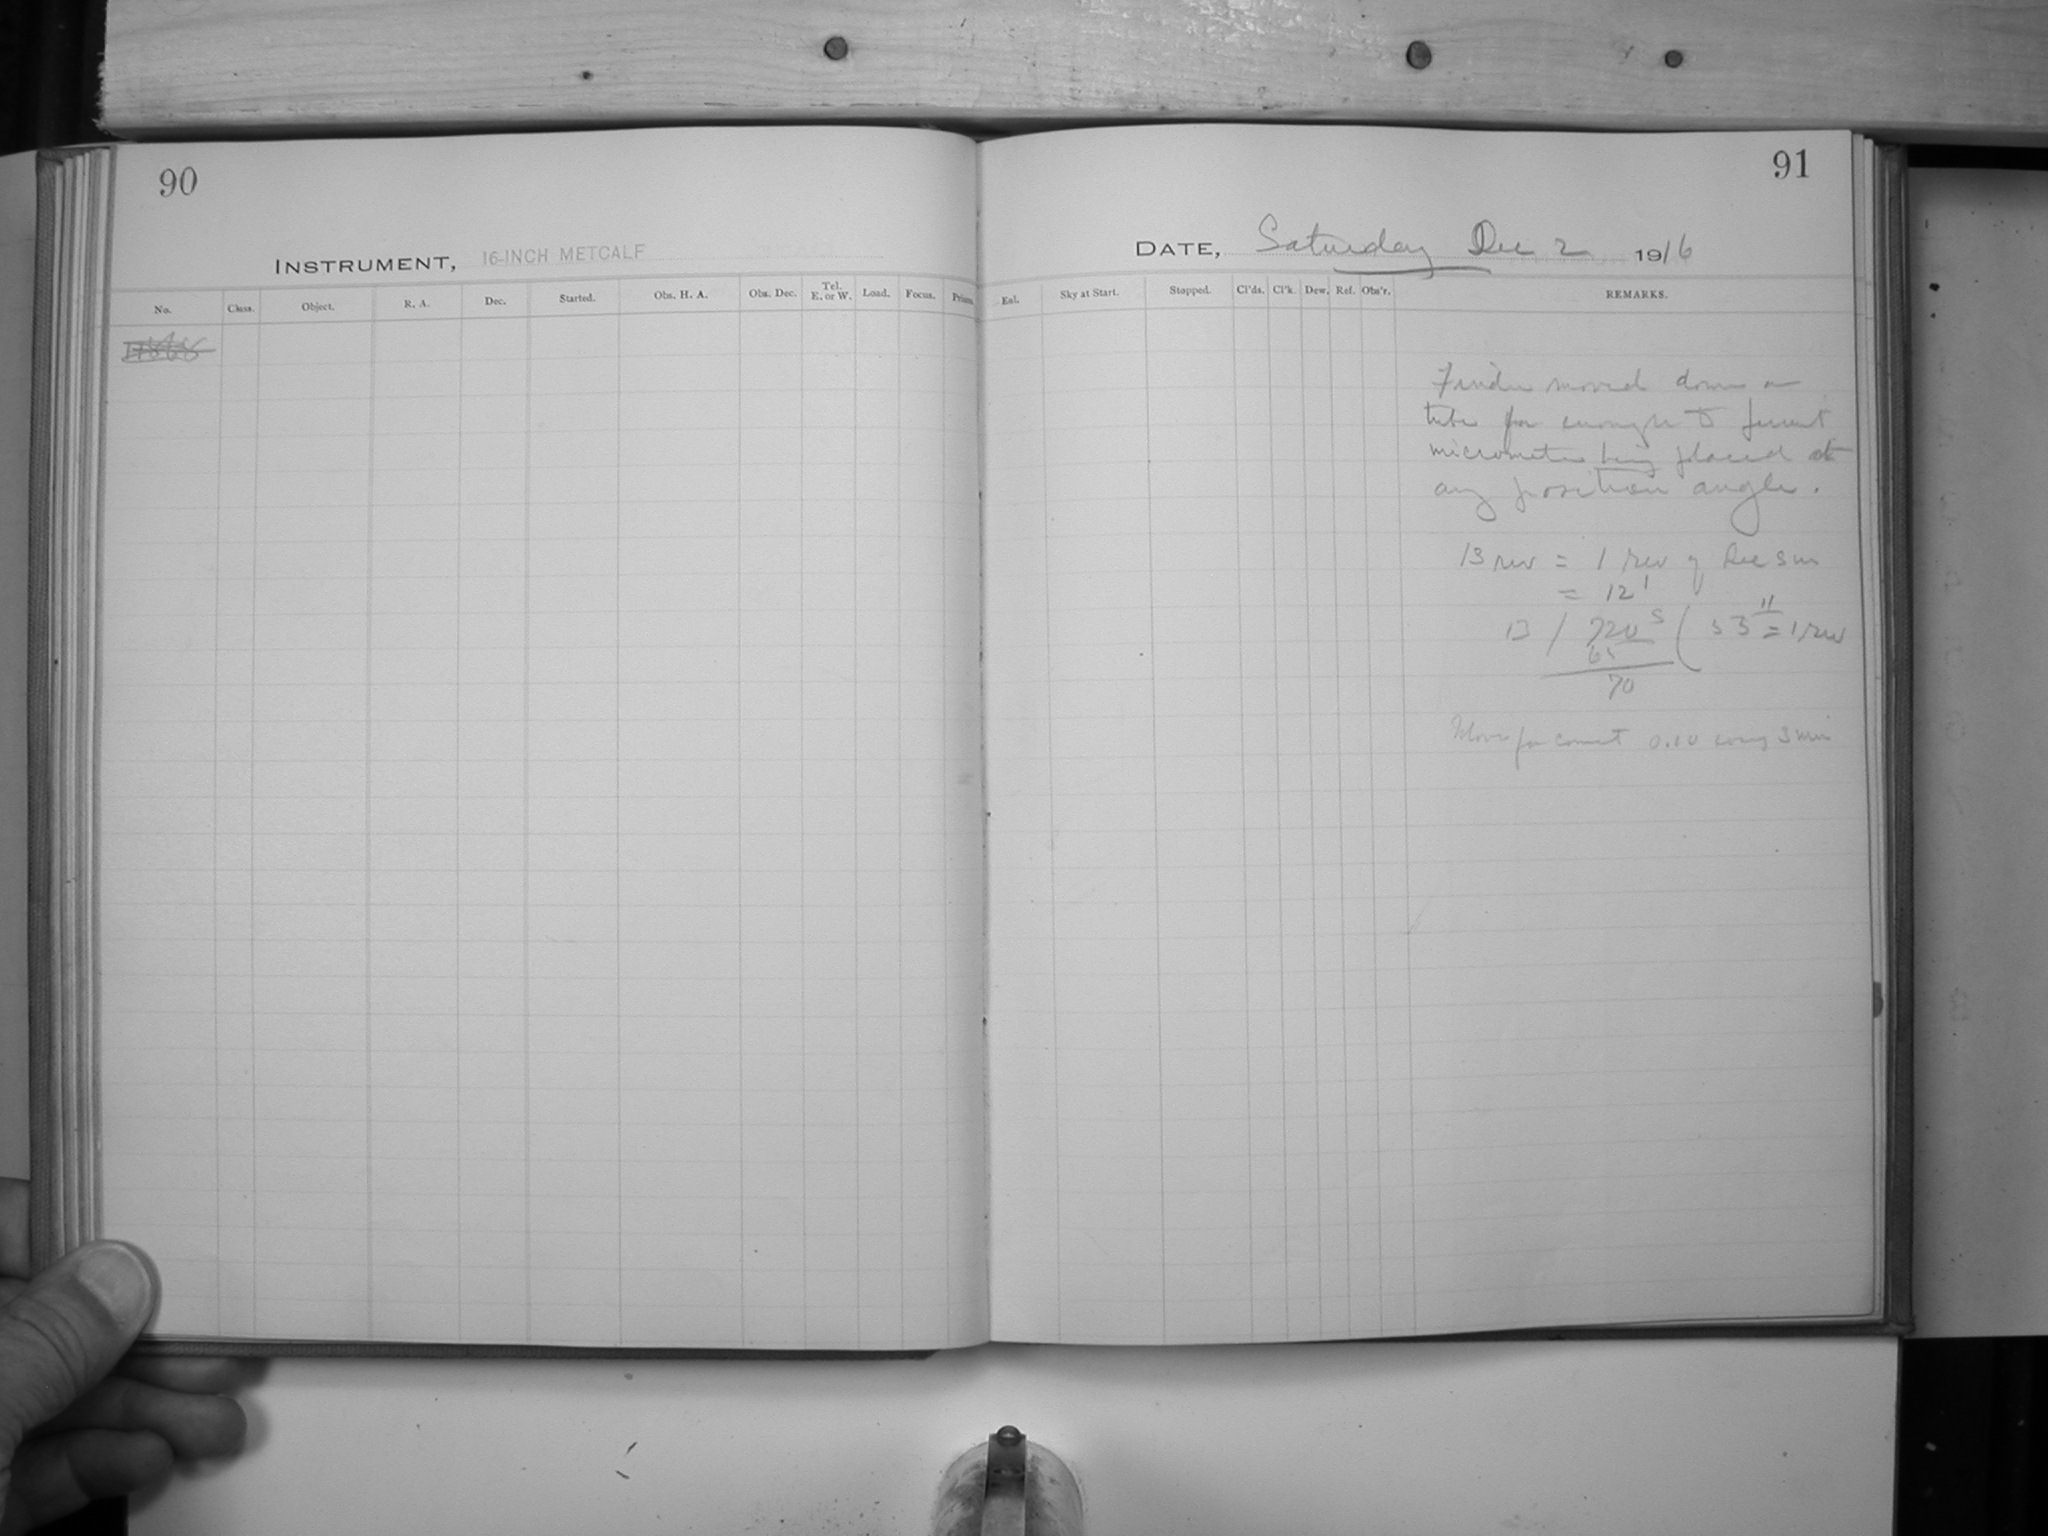 90
INSTRUMENT, 16-INCH METCALF
No. Class. Object. R. A. Dec. Started. Obs. H. A. Obs. Dec. Tel. E. or W. Load. Focus. Prism.
91
DATE, Saturday Dec 2 1916
Exl. Sky at Start. Stopped. Cl'ds. Cl'k. Dew. Ref. Obs'r. REMARKS.
Finder moved down on
tube far enough to permit
micrometer being placed at
any position angle.
13 rev = 1 rev of Dec
= 12'
13 / 720 s ( 53" = 1 rev
65
70
Move for comet 0.10 every 3 min